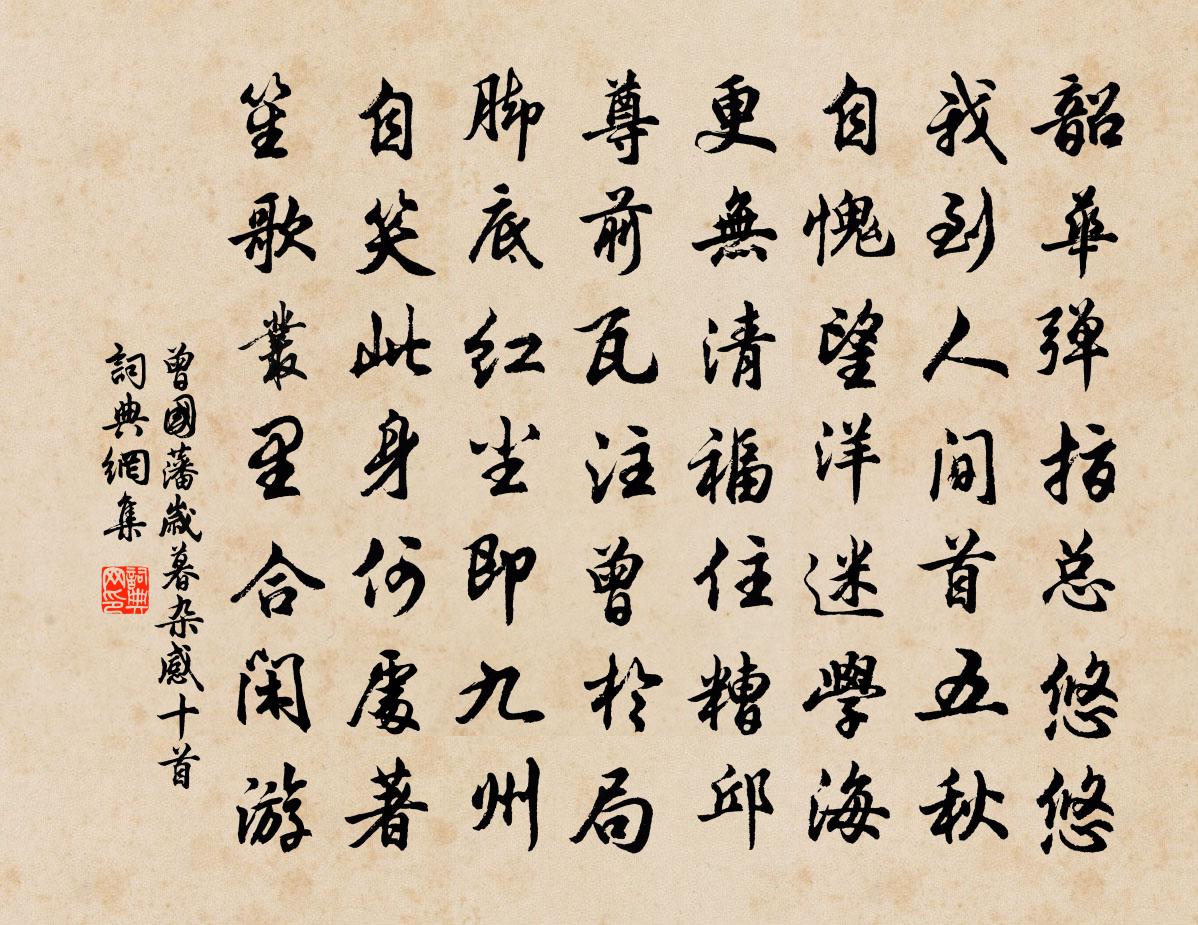 韶華彈指总悠悠
我到人间首五秋
自愧望洋迷學海
更無清福住糟邱
尊前瓦注曾於局
脚底红尘即九州
自笑此身何處著
笙歌叢里合閑游
曾國藩歲暮杂感十首
詞典網集
詞典网印